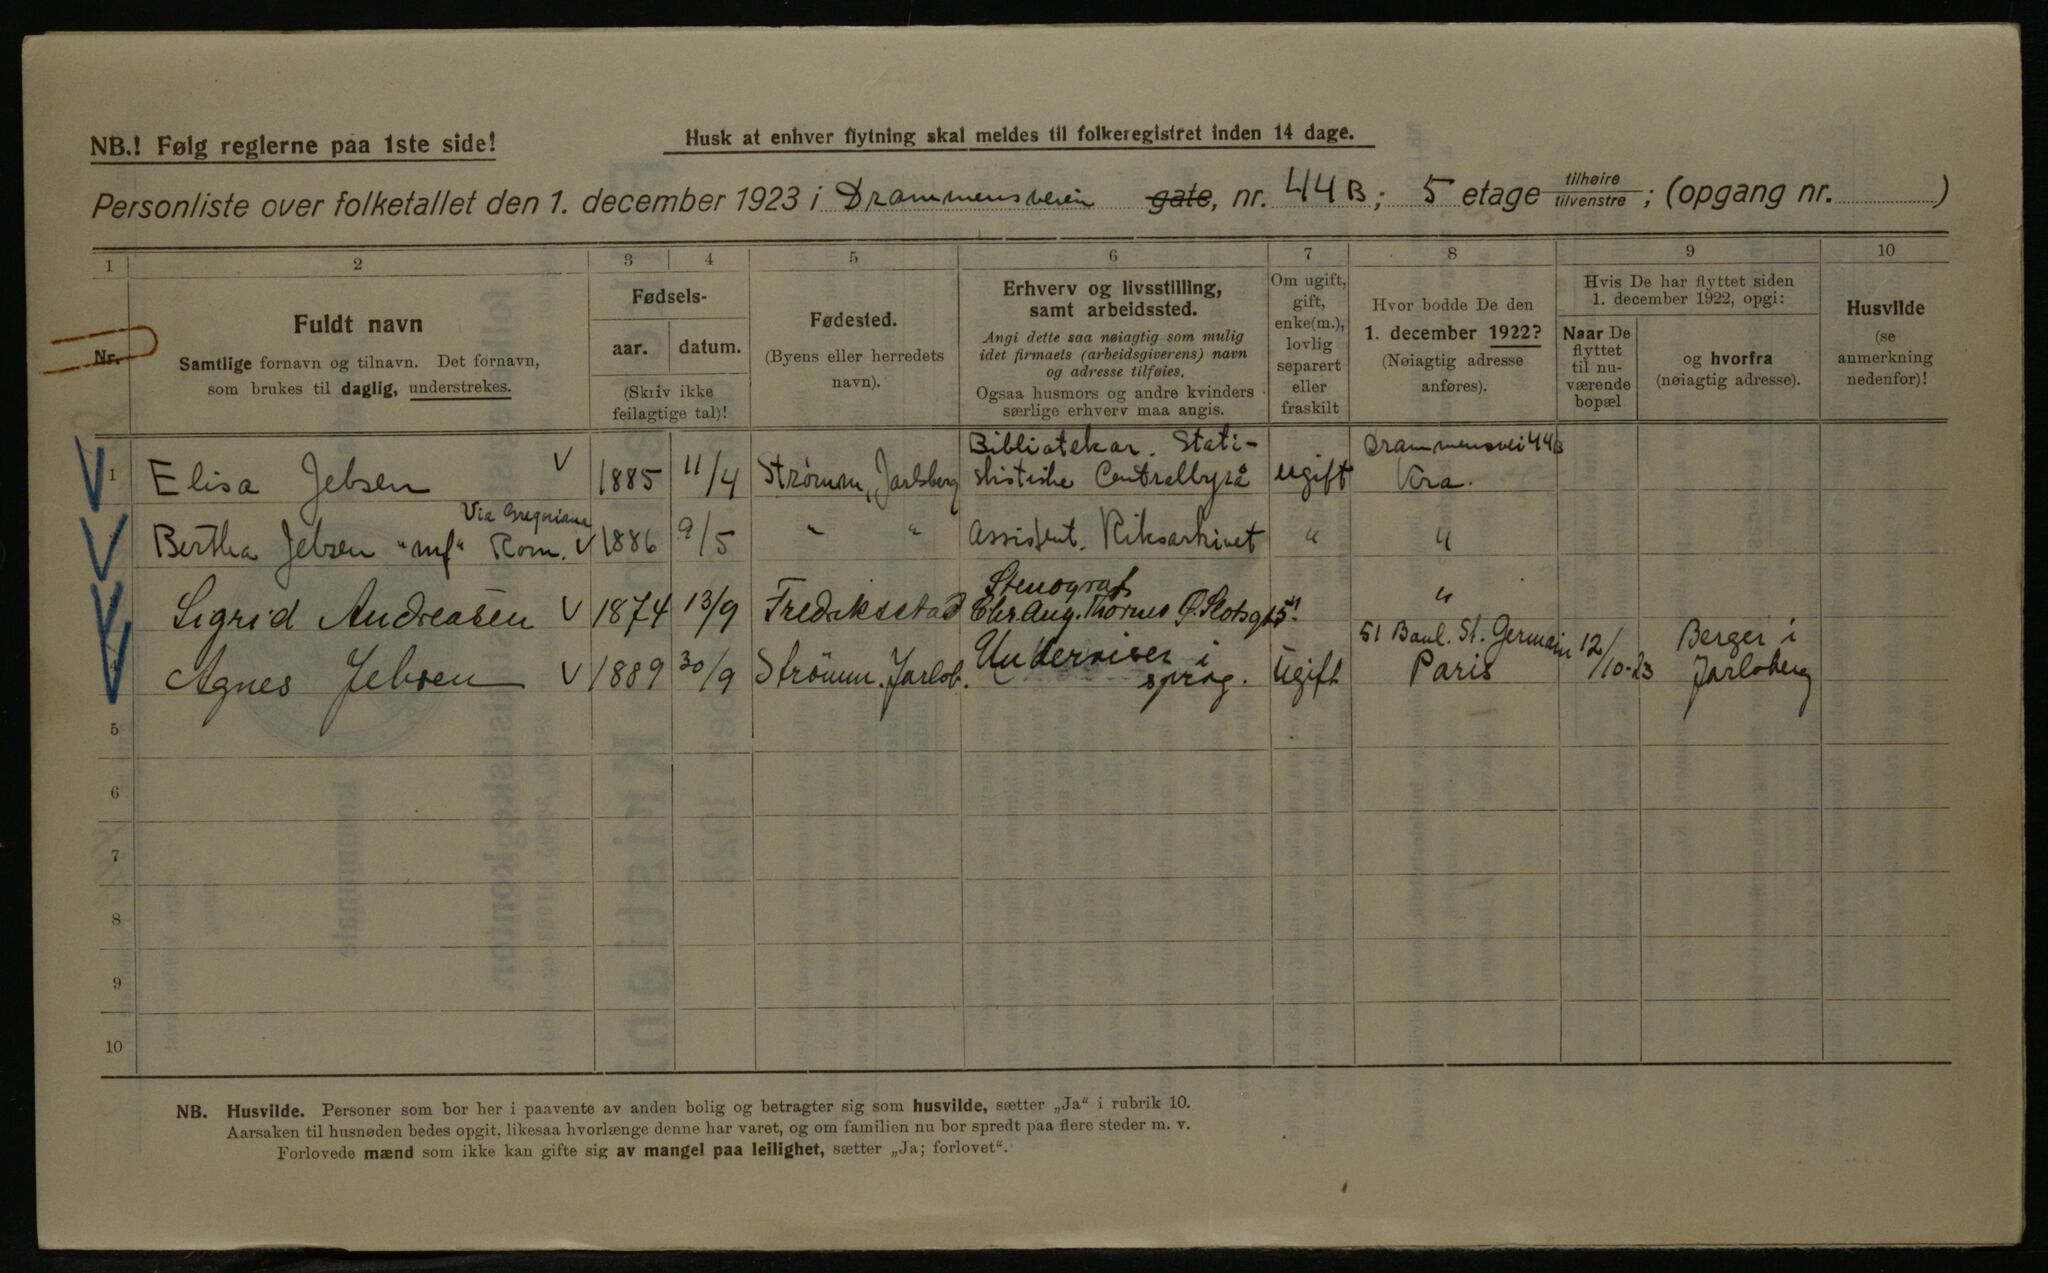 NB.! Følg reglerne paa 1ste side!
Husk at enhver flytning skal meldes til folkeregistret inden 14 dage.
Personliste over folketallet den 1. december 1923 i Drammensveien gate, nr. 44B; 5 etage tilhøire tilvenstre; (opgang nr. )
1 2 3 4 5 6 7 8 9 10
Nr.
Fuldt navn
Samtlige fornavn og tilnavn. Det fornavn,
som brukes til daglig, understrekes.
Fødsels-
aar. datum.
(Skriv ikke
feilagtige tal)!
Fødested.
(Byens eller herredets
navn).
Erhverv og livsstilling,
samt arbeidssted.
Angi dette saa nøiagtig som mulig
idet firmaets (arbeidsgiverens) navn
og adresse tilføies.
Ogsaa husmors og andre kvinders
særlige erhverv maa angis.
Om ugift,
gift,
enke(m.),
lovlig
separert
eller
fraskilt
Hvor bodde De den
1. december 1922?
(Nøiagtig adresse
anføres).
Hvis De har flyttet siden
1. december 1922, opgi:
Naar De
flyttet
til nu-
værende
bopæl
og hvorfra
(nøiagtig adresse).
Husvilde
(se
anmerkning
nedenfor)!
Bibliotekar. Stati- Drammensvei 44B
1 Elisa Jebsen V 1885 11/4 Strømm, Jarlsberg stistiske Centralbyrå ugift Kra.
Via Gregoriana
Bertha Jebsen "mf" Rom. V 1886 9/5 " " Assistent. Riksarkivet " "
Stenograf
Sigrid Andreasen V 1874 13/9 Fredriksstad Chr. Aug. Thornes Ø. Slotsgt 15 "
51 Boul. St. Germain
Agnes Jebsen V 1889 30/9 Strømm. Jarlsb. Underviser i sprog. Ugift Paris 12/10-23 Berger i
Jarlsberg
5
6
7
8
9
10
NB. Husvilde. Personer som bor her i paavente av anden bolig og betragter sig som husvilde, sætter „Ja“ i rubrik 10.
Aarsaken til husnøden bedes opgit, likesaa hvorlænge denne har varet, og om familien nu bor spredt paa flere steder m. v.
Forlovede mænd som ikke kan gifte sig av mangel paa leilighet, sætter „Ja; forlovet“.